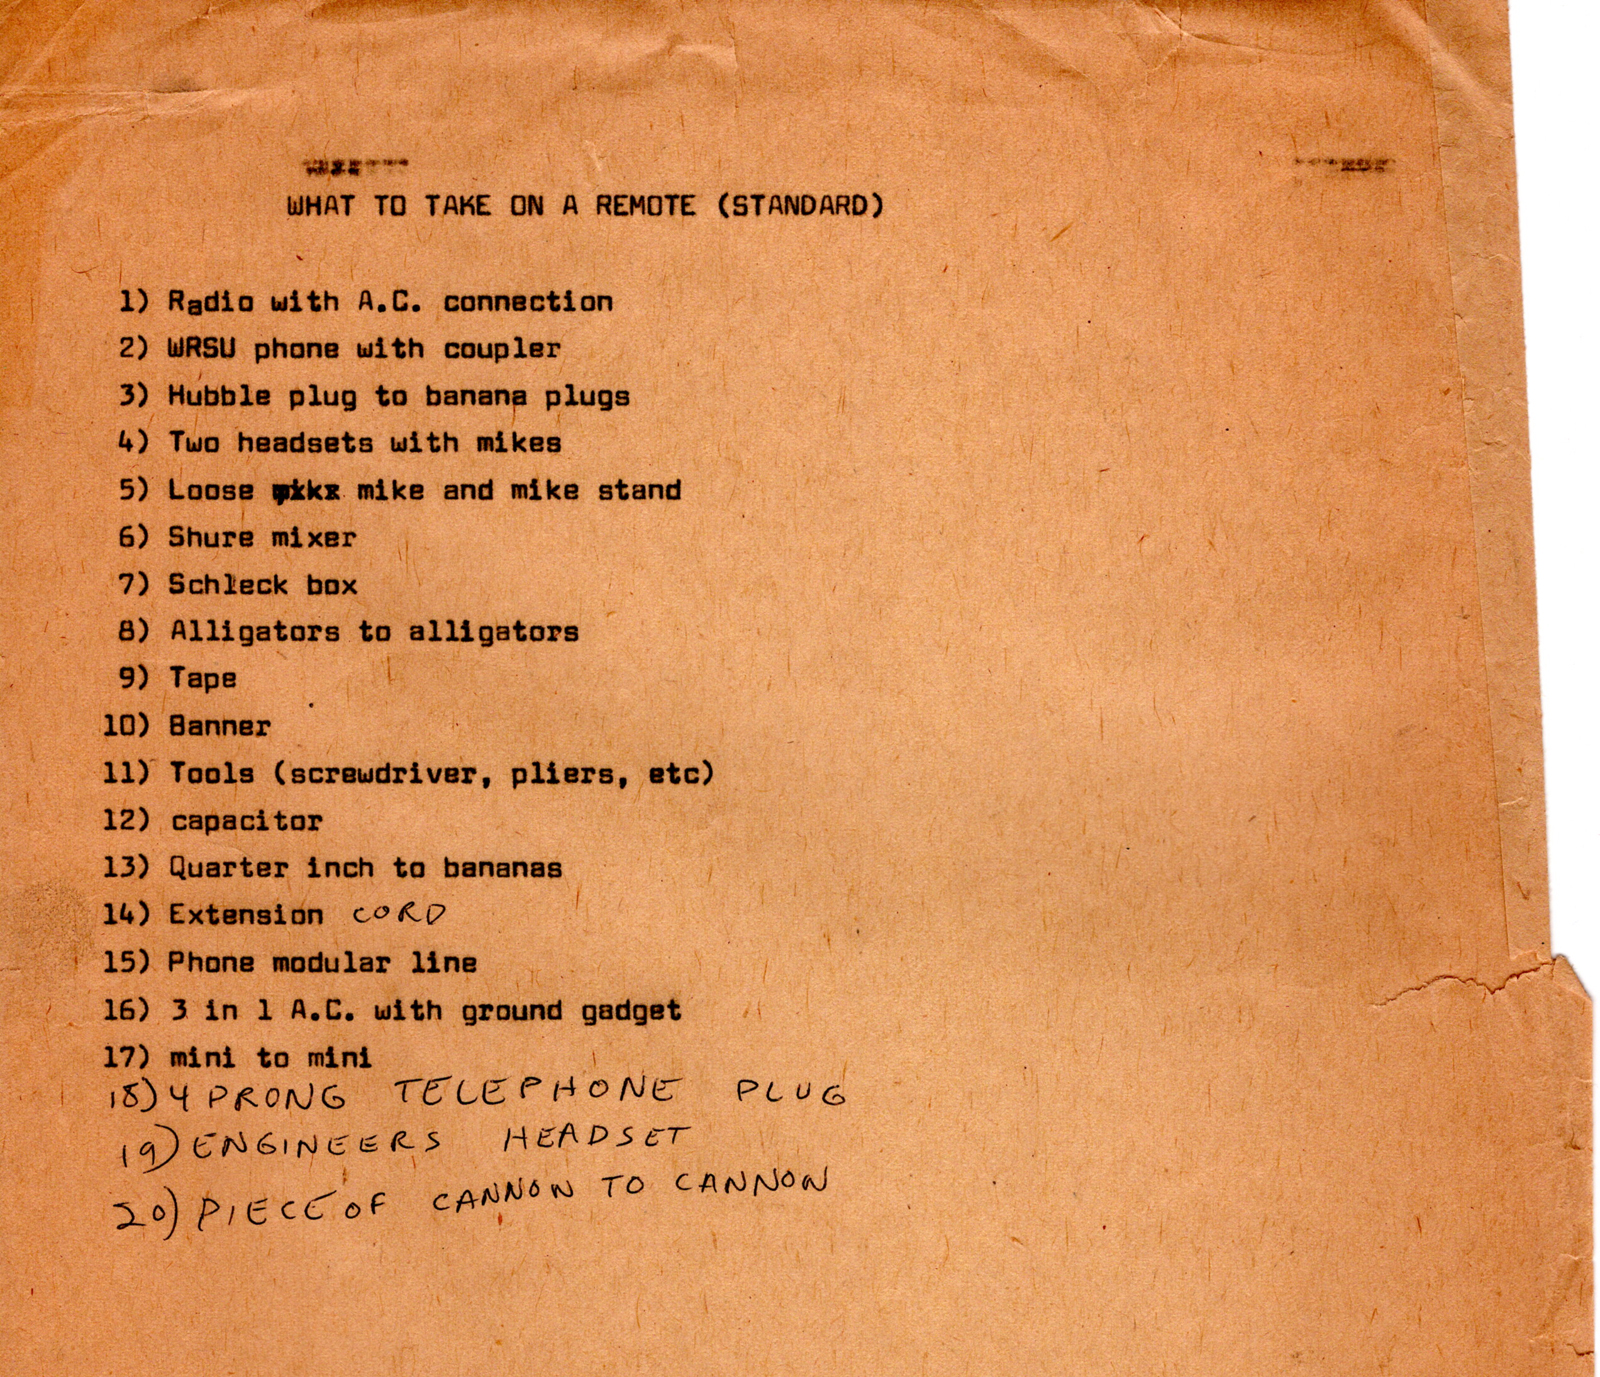 WHAT TO TAKE ON A REMOTE (STANDARD)
1) Radio with A.C. connection
2) WRSU phone with coupler
3) Hubble plug to banana plugs
4) Two headsets with mikes
5) Loose mike and mike stand
6) Shure mixer
7) Schleck box
8) Alligators to alligators
9) Tape
10) Banner
11) Tools (screwdriver, pliers, etc)
12) capacitor
13) Quarter inch to bananas
14) Extension CORD
15) Phone modular line
16) 3 in 1 A.C. with ground gadget
17) mini to mini
18) 4 PRONG TELEPHONE PLUG
19) ENGINEERS HEADSET
20) PIECE OF CANNON TO CANNON